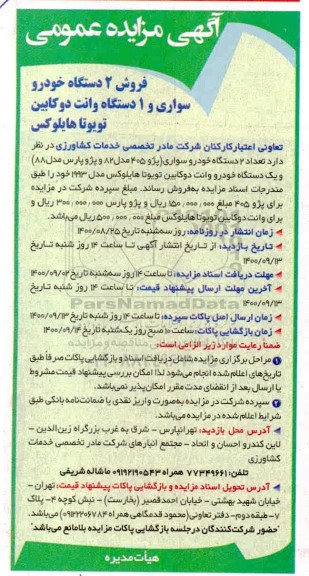 آگهی مزایده عمومی
فروش ۲ دستگاه خودرو
سواری و ۱ دستگاه وانت دوکابین
تویوتا هایلوکس
تعاونی اعتبار کارکنان شرکت مادر تخصصی خدمات کشاورزی در نظر
دارد تعداد ۲ دستگاه خودرو سواری (پژو ۴۰۵ مدل ۸۲ و پژو پارس مدل ۸۸)
و یک دستگاه خودرو وانت دوکابین تویوتا هایلوکس مدل ۱۹۹۳ خود را طبق
مندرجات اسناد مزایده به‌فروش رساند. مبلغ سپرده شرکت در مزایده
برای پژو ۴۰۵ مبلغ ۱۵۰,۰۰۰,۰۰۰ ریال و پژو پارس ۳۰۰,۰۰۰,۰۰۰ ریال و
برای وانت دوکابین تویوتا هایلوکس مبلغ ۵۰۰,۰۰۰,۰۰۰ ریال می‌باشد.
زمان انتشار در روزنامه: روز سه‌شنبه تاریخ ۱۴۰۰/۰۸/۲۵
تاریخ بازدید: از تاریخ انتشار آگهی تا ساعت ۱۴ روز شنبه تاریخ
۱۴۰۰/۰۹/۱۳
مهلت دریافت اسناد مزایده: تا ساعت ۱۴ روز سه‌شنبه تاریخ ۱۴۰۰/۰۹/۰۲
آخرین مهلت ارسال پیشنهاد قیمت: تا ساعت ۱۴ روز شنبه تاریخ
۱۴۰۰/۰۹/۱۳
ParsNamadData
زمان ارسال اصل پاکات سپرده: تا ساعت ۱۴ روز شنبه تاریخ ۱۴۰۰/۰۹/۱۳
زمان بازگشایی پاکات: ساعت ۱۰ صبح روز یکشنبه تاریخ ۱۴۰۰/۰۹/۱۴
ضمناً رعایت موارد زیر الزامی است:
۱ مراحل برگزاری مزایده شامل دریافت اسناد و بازگشایی پاکات صرفاً طبق
تاریخ‌های اعلام شده انجام می‌شود لذا امکان بررسی پیشنهاد قیمت مشروط
یا ارسال بعد از انقضای مدت مقرر امکان‌پذیر نمی‌باشد.
۲ سپرده شرکت در مزایده به‌صورت واریز نقدی یا ضمانت‌نامه بانکی طبق
شرایط اعلام شده در مزایده می‌باشد.
آدرس محل بازدید: تهرانپارس - شرق به غرب بزرگراه زین‌الدین -
لاین کندرو احسان و اتحاد - مجتمع انبارهای شرکت مادر تخصصی خدمات
کشاورزی
تلفن: ۷۷۳۴۹۶۶۱ همراه ۰۹۱۲۱۹۰۵۴۳ ماشاله شریفی
آدرس تحویل اسناد مزایده و بازگشایی پاکات پیشنهاد قیمت: تهران -
خیابان شهید بهشتی - خیابان احمدقصیر (بخارست) - نبش کوچه ۴ - پلاک
۷ - طبقه دوم - دفتر تعاونی (محمود قدمگاهی همراه ۰۹۱۲۲۰۶۷۸۴) می‌باشد.
"حضور شرکت‌کنندگان در جلسه بازگشایی پاکات مزایده بلامانع می‌باشد"
هیأت مدیره